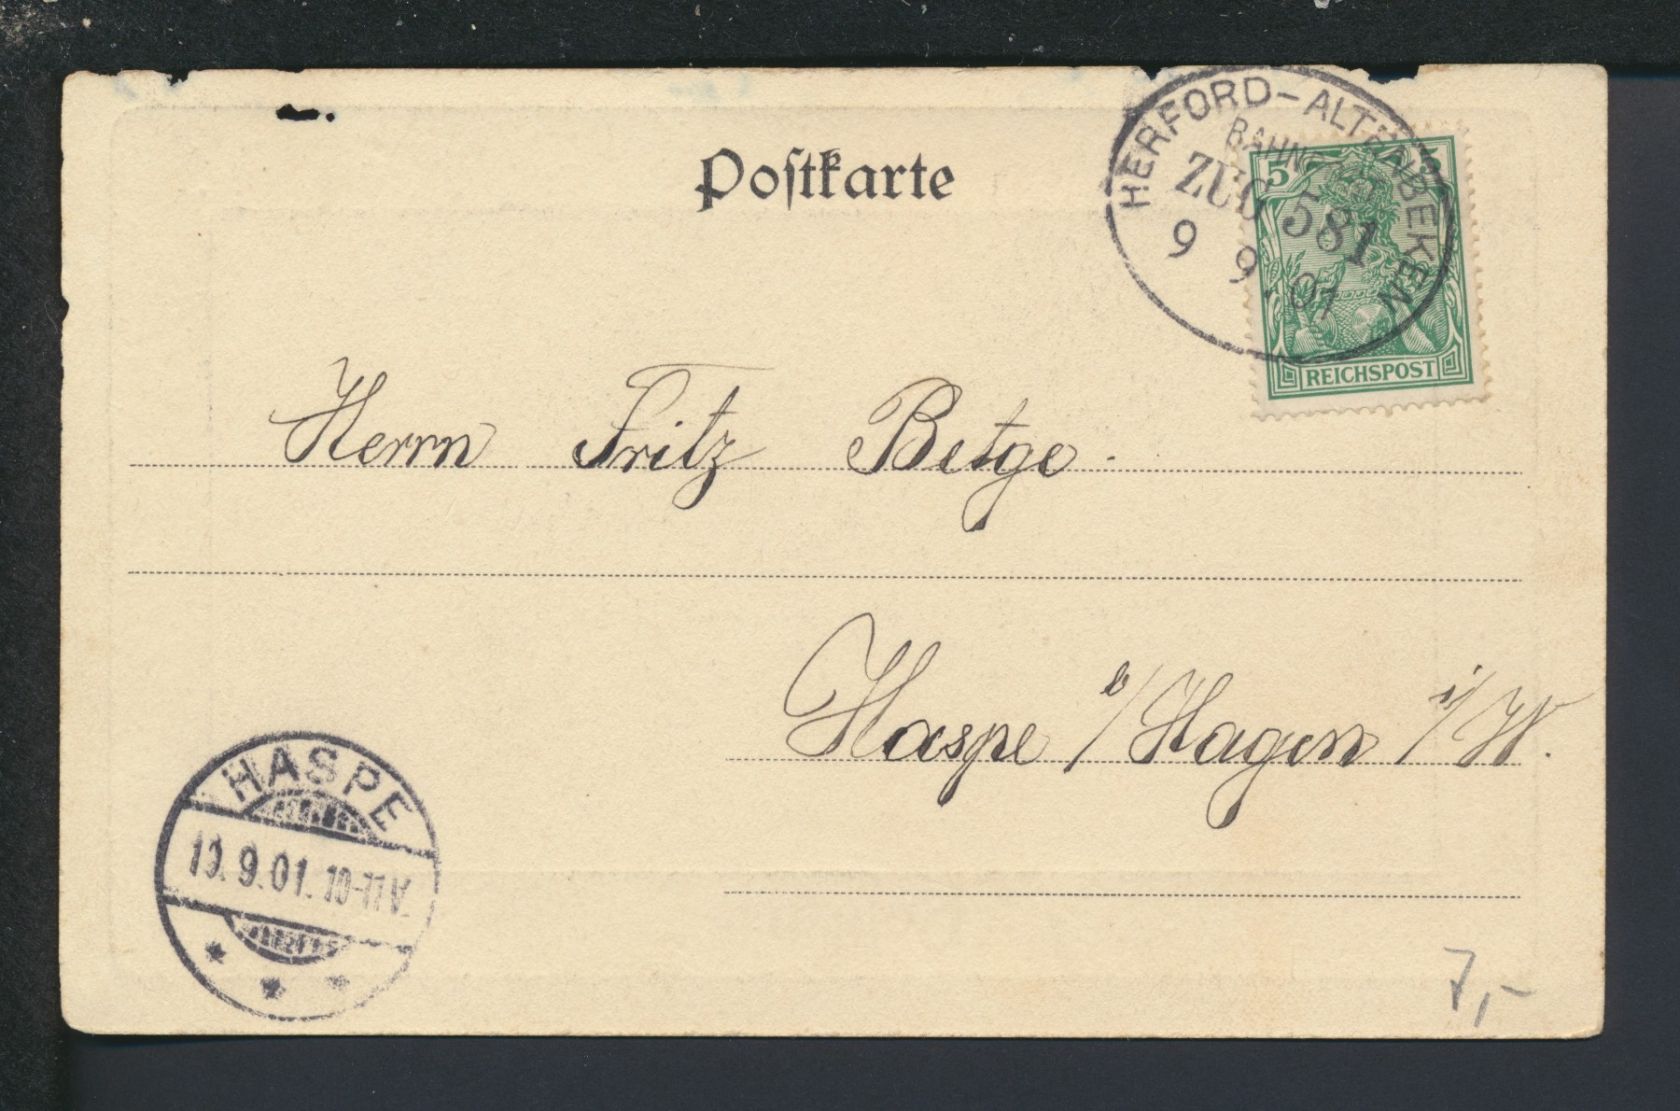 Postkarte
HERFORD-ALTENBEKEN
BAHNPOST
ZUG 581
9 9.01
5 5
REICHSPOST
Herrn Fritz Betge.
Haspe b/Hagen i/W.
HASPE
10.9.01. 10-11V.
7,-